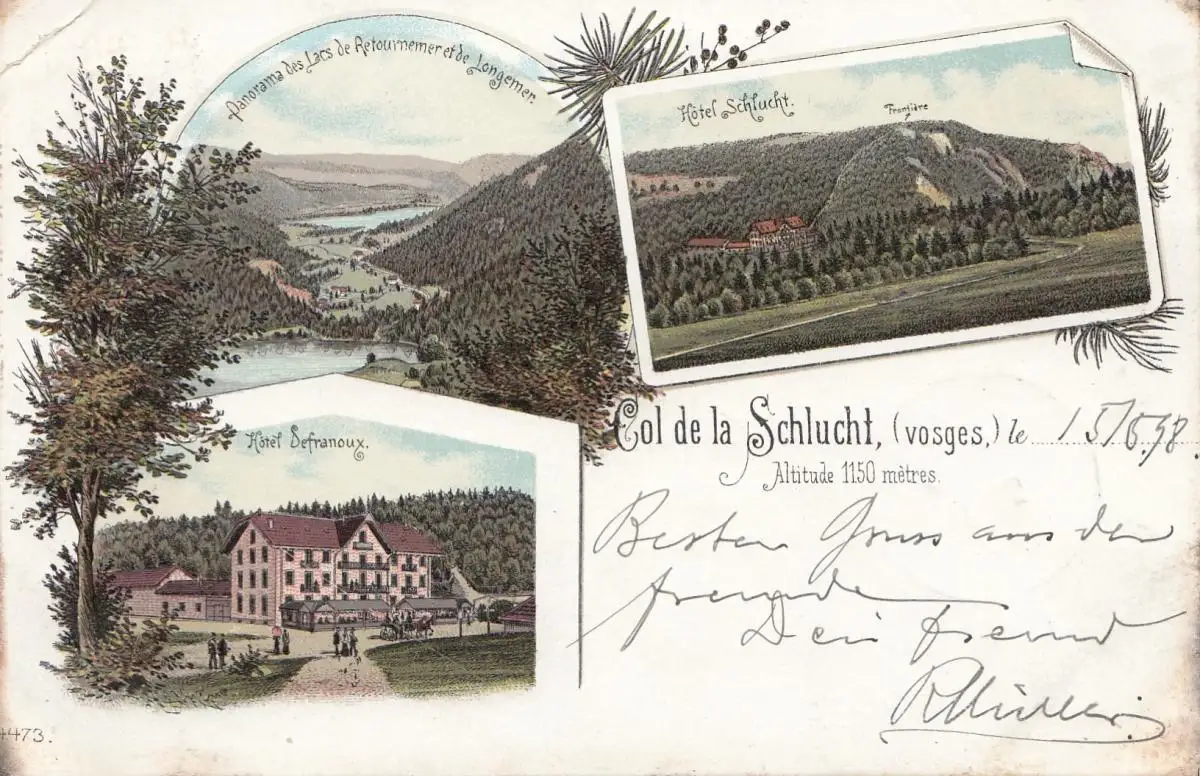 Panorama des Lacs de Retournemer et de Longemer.
Hôtel Schlucht.
Frontière
Hôtel Defranoux.
Col de la Schlucht, (vosges,) le 15/6.98.
Altitude 1150 mètres.
Besten Gruss aus der
fremde
Dein freund
RMüller
4473.